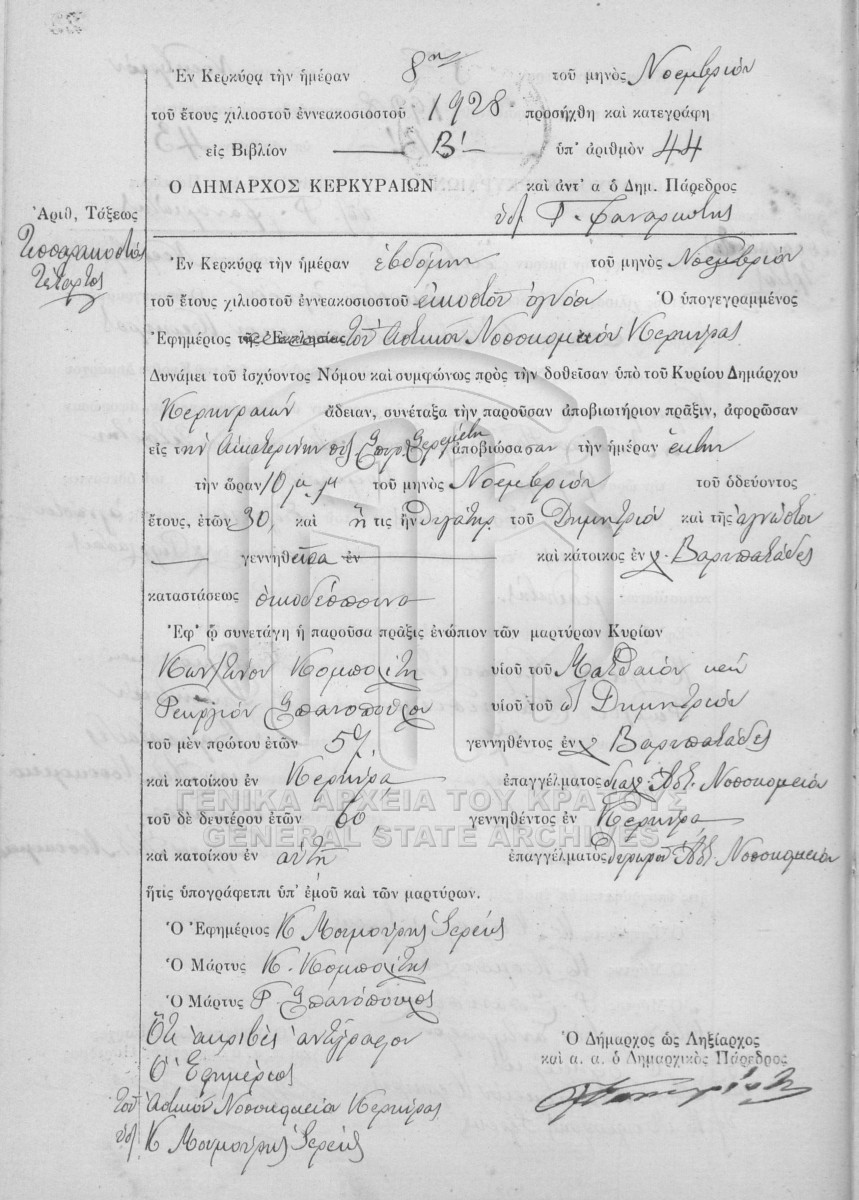 Ἐν Κερκύρᾳ τὴν ἡμέραν 8ην τοῦ μηνὸς Νοεμβρίου
τοῦ ἔτους χιλιοστοῦ ἐννεακοσιοστοῦ 1928 προσήχθη καὶ κατεγράφη
εἰς Βιβλίον Β' ὑπ' ἀριθμὸν 44
Ο ΔΗΜΑΡΧΟΣ ΚΕΡΚΥΡΑΙΩΝ καὶ ἀντ' α ὁ Δημ. Πάρεδρος
Ἀριθ, Τάξεως
Τεσσαρακοστὸς
τέταρτος
Ἐν Κερκύρᾳ τὴν ἡμέραν ἑβδόμην τοῦ μηνὸς Νοεμβρίου
τοῦ ἔτους χιλιοστοῦ ἐννεακοσιοστοῦ εἰκοστοῦ ὀγδόου Ὁ ὑπογεγραμμένος
Ἐφημέριος τῆς Ἐκκλησίας τοῦ Ἀστικοῦ Νοσοκομείου Κερκύρας
Δυνάμει τοῦ ἰσχύοντος Νόμου καὶ συμφώνως πρὸς τὴν δοθεῖσαν ὑπὸ τοῦ Κυρίου Δημάρχου
Κερκυραίων ἄδειαν, συνέταξα τὴν παροῦσαν ἀποβιωτήριον πρᾶξιν, ἀφορῶσαν
εἰς τὴν Αἰκατερίνην ἀποβιώσασαν τὴν ἡμέραν ἕκτην
τὴν ὥραν 10 μ. μ τοῦ μηνὸς Νοεμβρίου τοῦ ὁδεύοντος
ἔτους, ἐτῶν 30, καὶ ἥ τις ἦν θυγάτηρ τοῦ Δημητρίου καὶ τῆς ἀγνώστου
γεννηθεῖσα ἐν καὶ κάτοικος ἐν χ. Βαρυπατάδες
καταστάσεως οἰκοδέσποινα
Ἐφ' ᾧ συνετάγη ἡ παροῦσα πρᾶξις ἐνώπιον τῶν μαρτύρων Κυρίων
Κων/τίνου Κομπολίτη υἱοῦ τοῦ Ματθαίου καὶ
Γεωργίου Σπανοπούλου υἱοῦ τοῦ Δημητρίου
τοῦ μὲν πρώτου ἐτῶν 57, γεννηθέντος ἐν χ Βαρυπατάδες
καὶ κατοίκου ἐν Κερκύρᾳ ἐπαγγέλματος Ἀστ. Νοσοκομείου
τοῦ δὲ δευτέρου ἐτῶν 60, γεννηθέντος ἐν Κερκύρᾳ
καὶ κατοίκου ἐν αὐτῇ ἐπαγγέλματος θυρωροῦ Ἀστ. Νοσοκομείου
ΓΕΝΙΚΑ ΑΡΧΕΙΑ ΤΟΥ ΚΡΑΤΟΥΣ
GENERAL STATE ARCHIVES
ἥτις ὑπογράφετπι ὑπ' ἐμοῦ καὶ τῶν μαρτύρων.
Ὁ Ἐφημέριος Κ Μουμούρης Ἱερεὺς
Ὁ Μάρτυς Κ. Κομπολίτης
Ὁ Μάρτυς Γ. Σπανόπουλος
Ὅτι ἀκριβὲς ἀντίγραφον
Ὁ Ἐφημέριος
τοῦ Ἀστικοῦ Νοσοκομείου Κερκύρας
Κ Μουμούρης Ἱερεὺς
Ὁ Δήμαρχος ὡς Ληξίαρχος
καὶ α. α. ὁ Δημαρχικὸς Πάρεδρος